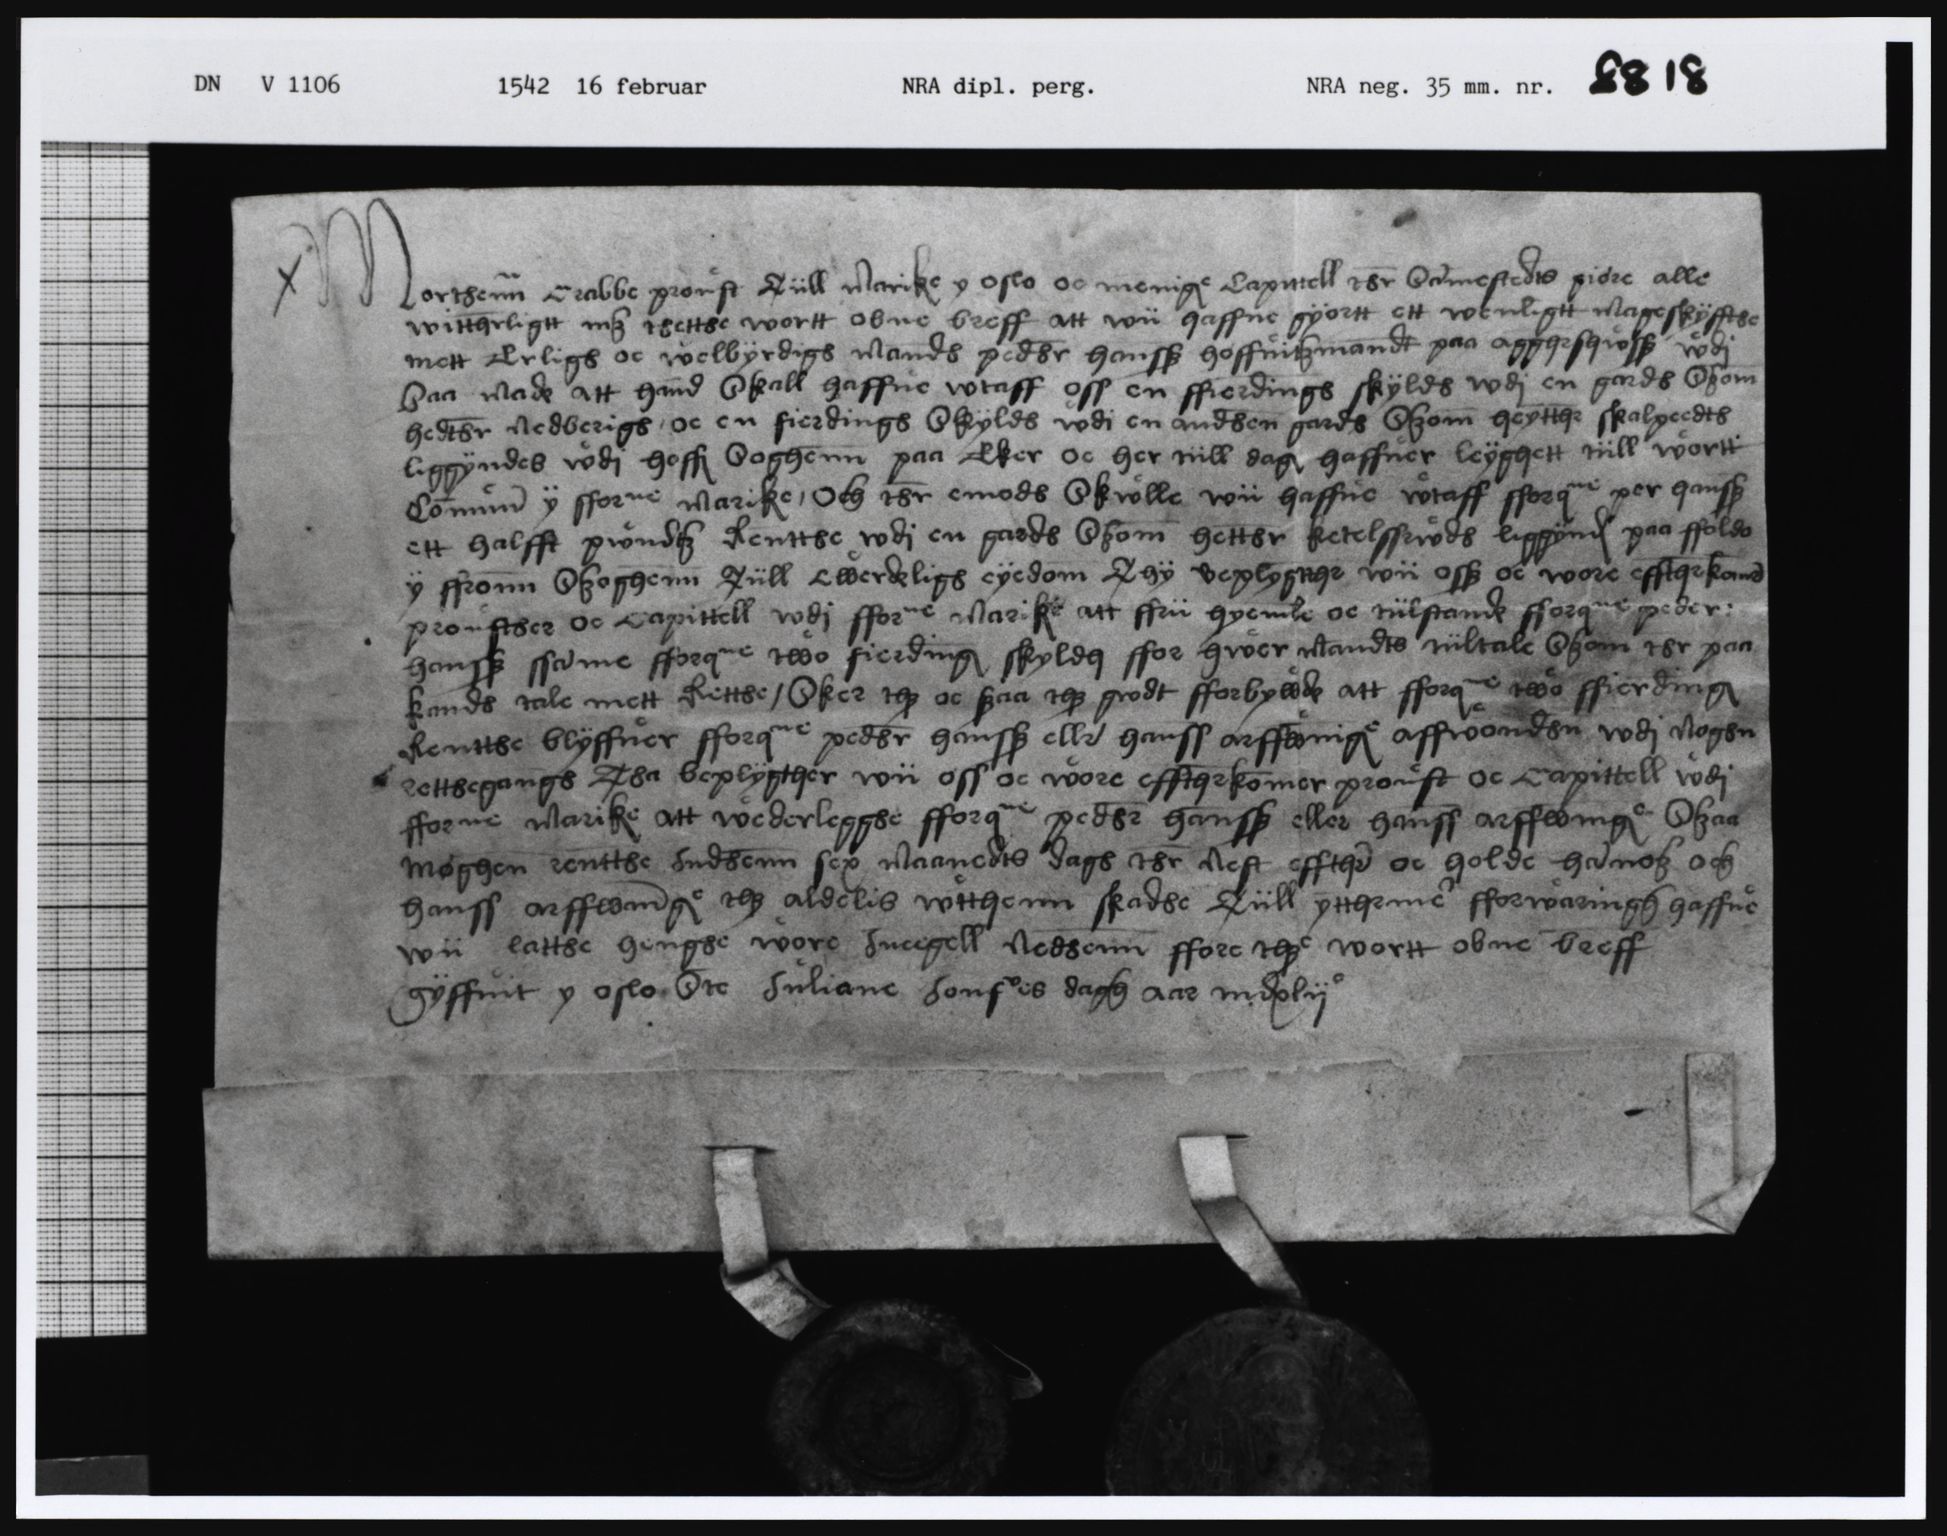 DN V 1106 1542 16 februar NRA dipl. perg. NRA neg. 35 mm. nr.
Morthenn Crabbe proust Tiill Marike y oslo oc menige Capittell ther Samestedts giøre alle
witherligtt mz thetthe wortt obne breff att wii haffue gyortt ett wenligtt Mageskÿffthe
mett Erlige oc welbÿrdige Mands peder hanss hoffuitzmandt paa aggershwss wdj
Saa Made att hand Skall haffue wtaff oss en ffierdings skÿlds wdj en gards Szom
hedther Nedberige oc en fierdings Skÿlds wdi en andhen gards Szom heytther skalpeedts
liggÿndes wdj hoff Soghenn paa Eker oc her tiill dag haffuer leÿghett tiill wortt
Comun ÿ fforne Marike / Och ther emods Skulle wii haffue wtaff fforqne per hanss
ett halfft pwndz Rentthe wdj en gards Szom hetther ketelssrwds liggÿnd paa ffoldo
ÿ ffronn Szoghenn Tiill Ewerdelige eÿedom Thÿ beplygther wii oss oc wore effterkomd
prousther oc Capittell wdj fforne Marike att ffrii hyemle oc tiilstande fforqne peder
hanss ssame fforqne two fierding skyldq ffor hwer Mandts tiiltale Szom ther paa
kands tale mett Retthe / Sker thz oc szaa thz gwdt fforbywde att fforqne two ffierding
Rentthe blÿffuer fforqne peder hanss eller hanss arffwinge affwondhen wdj Noghen
retthegangs Tha beplÿgther wii oss oc wore efftherkomer proust oc Capittell wdj
fforne Marike att wederlegghe fforqne peder hanss eller hanss arffwinge Szaa
Møghen rentthe Indhenn sex Maanedts dags ther Nest effther oc holde hanoz och
hanss arffwinge thz aldelis wtthenn skadhe Tiill ytthermer fforwaringh haffue
wii latthe henghe wore Incegell Nedhenn ffore thz wortt obne breff
gÿffuit y oslo Ste Juliane dagh aar mdxlij